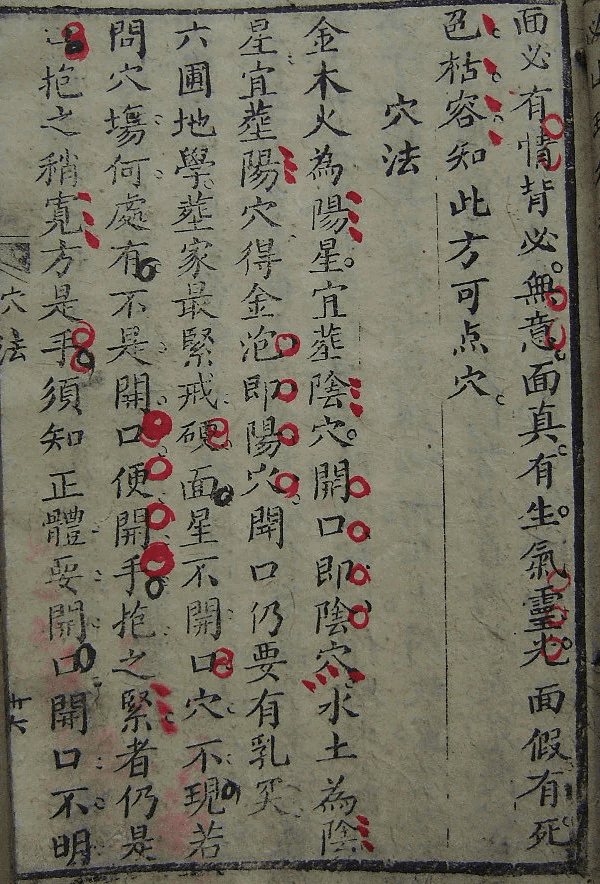 面必有情背必無意面真有生氣靈光面假有死
色枯容知此方可点穴
穴法
金木火為陽星宜塟陰穴開口即陰穴水土為陰
星宜塟陽穴得金泡即陽穴開口仍要有乳突
六圃地學塟家最緊戒硬面星不開口穴不現若
問穴塲何處有不是開口便開手抱之緊者仍是
抱之稍寛方是手須知正體要開口開口不明
穴法
廿六